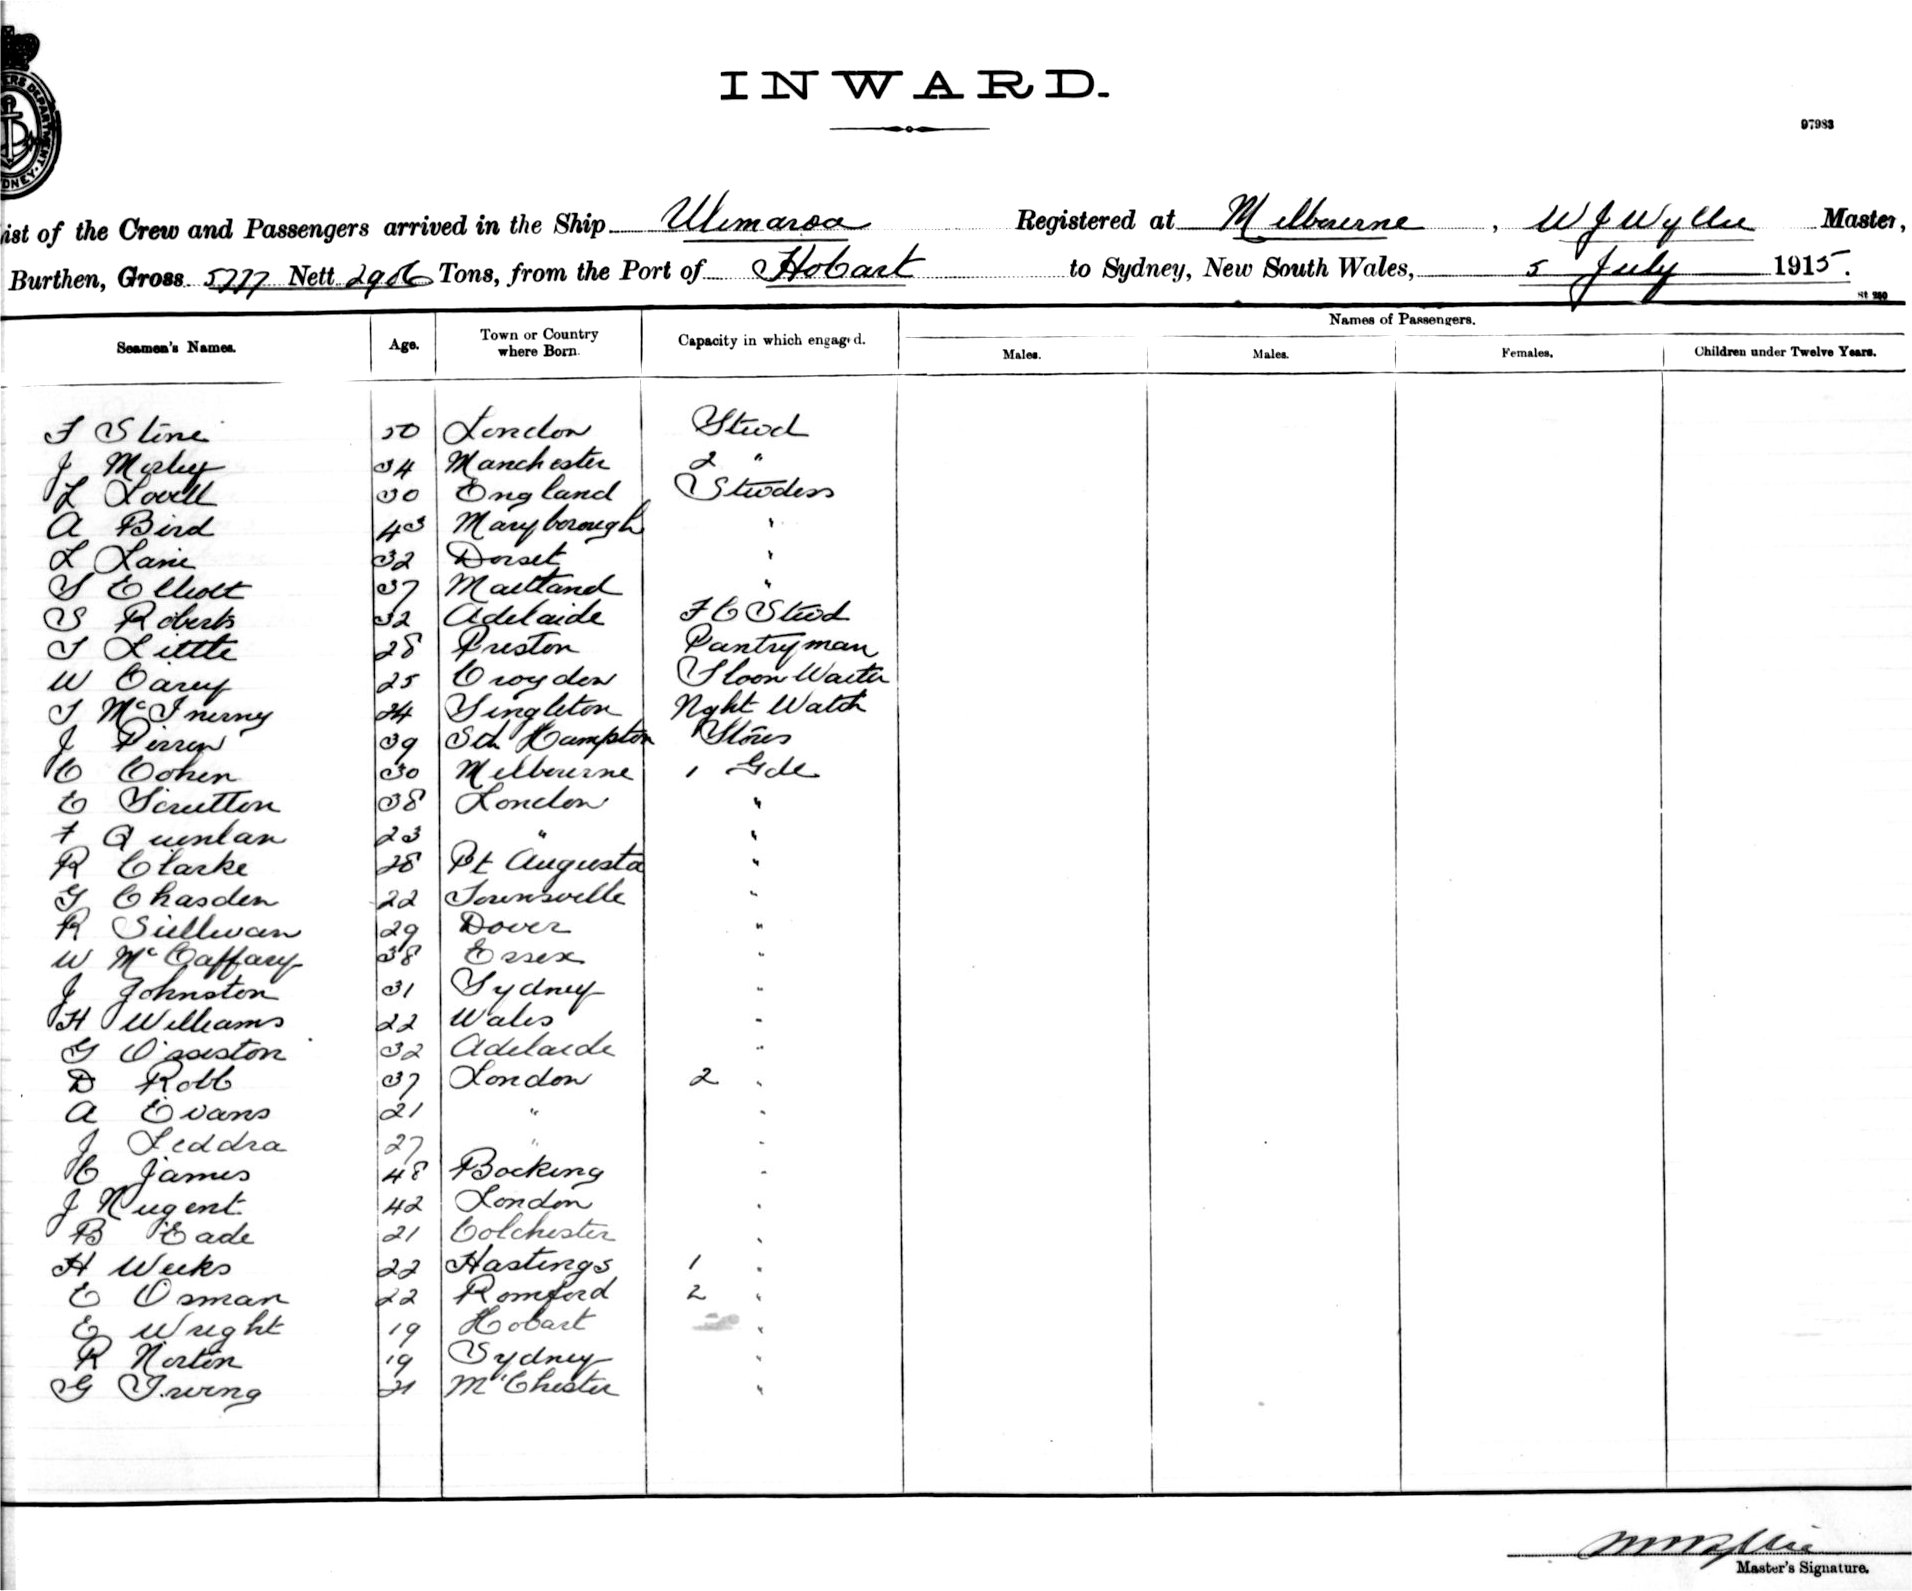 INWARD.
97983
ist of the Crew and Passengers arrived in the Ship Ulimaroa Registered at Melbourne, W J Wyllie Master,
Burthen, Gross 5777 Nett Tons, from the Port of Hobart to Sydney, New South Wales, 5 July 1915.
Names of Passengers.
Seamen's Names. Age. Town or Country where Born. Capacity in which engaged. Males. Males. Females. Children under Twelve Years.
F Stone 50 London Stwd
J Morley 34 Manchester 2 "
L Lovell 30 England Stwdess
A Bird 43 Maryborough "
L Lane 32 Dorset "
S Elliott 37 Maitland "
S Roberts 32 Adelaide F C Stwd
T Little 28 Preston Pantryman
W Carey 25 Croydon Sloon Waiter
T McInerny 24 Singleton Nght Watch
J Pirren 39 Sth Hampton Stores
C Cohen 30 Melbourne 1 Gde
E Scrutton 38 London "
F Quinlan 23 " "
R Clarke 28 Pt Augusta "
G Chasden 22 Townsville "
R Sullivan 29 Dover "
W McCaffary 38 Essex "
J Johnston 31 Sydney "
H Williams 22 Wales "
G Osseston 32 Adelaide "
D Robb 37 London 2 "
A Evans 21 " "
J Leddra 27 " "
C James 48 Bocking "
J Nugent 42 London "
B Eade 21 Colchester "
H Weeks 22 Hastings 1 "
E Osman 22 Romford 2 "
E Wright 19 Hobart "
R Norton 19 Sydney "
G Irving 21 M'Chester "
Master's Signature.